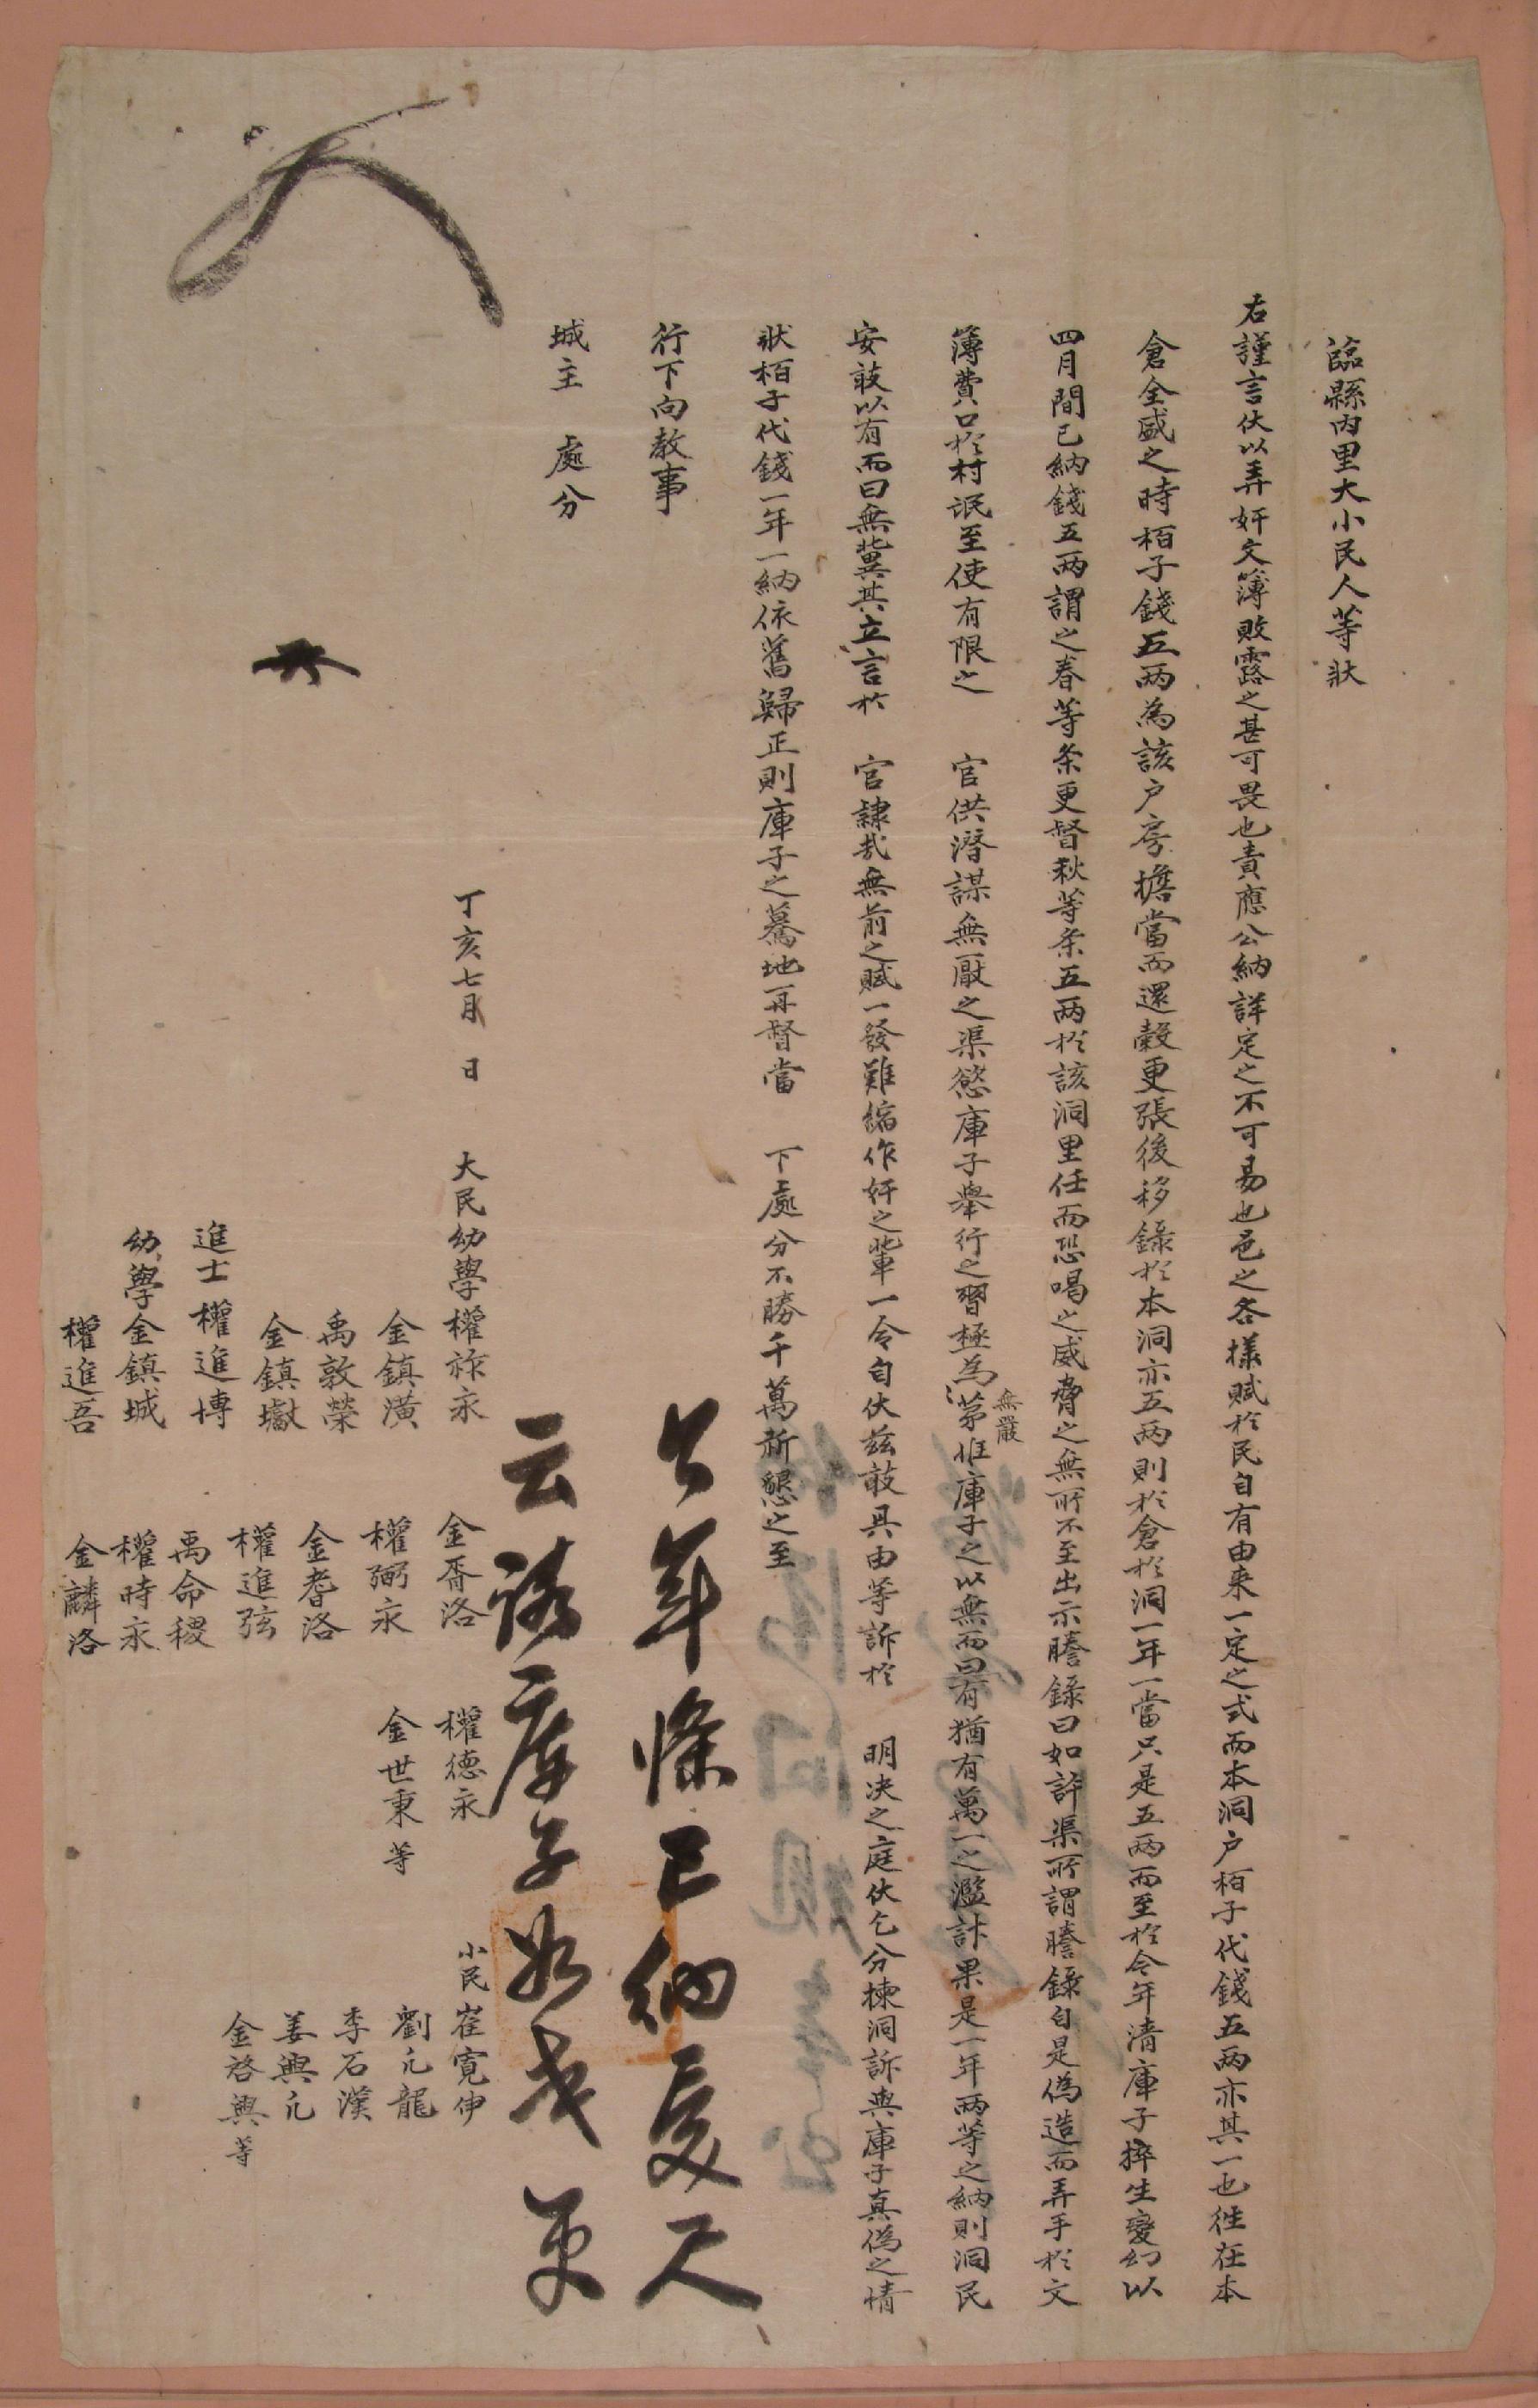 臨縣內里大小民人等狀
右謹言伏以弄奸文簿敗露之甚可畏也責應公納詳定之不可易也邑之各樣賦於民自有由來一定之式而本洞戶栢子代錢五兩亦其一也往在本
倉全盛之時栢子錢五兩為該戶房擔當而還穀更張後移錄於本洞亦五兩則於倉於洞一年一當只是五兩而至於今年淸庫子猝生變幻以
四月間已納錢五兩謂之春等条更督秋等条五兩於該洞里任而恐喝之威脅之無所不至出示謄錄曰如許渠所謂謄錄自是偽造而弄手於文
簿費口於村氓至使有限之 官供潛謀無厭之渠慾庫子舉行之習極為無嚴苐惟庫子之以無而曰有猶有萬一之濫計果是一年兩等之納則洞民
安敢以有而曰無冀其立言於 官隷㢤無前之賦一發難縮作奸之輩一令自伏玆敢具由等訴於 明決之庭伏乞分揀洞訴與庫子真偽之情
狀栢子代錢一年一納依舊歸正則庫子之驀地再督當 下處分不勝千萬祈懇之至
行下向敎事
城主 處分
丁亥七月 日
大民幼學權祚永 金胥洛 權德永
金鎭潢 權弼永 金世秉等
禹敦榮 金耆洛
金鎭㘛 權進弦
進士 權進博 禹命稷
幼學金鎭城 權時永
權進吾 金麟洛
小民崔寬伸
劉元龍
李石漢
姜興元
金啓興等
年條已納受尺
云該庫子